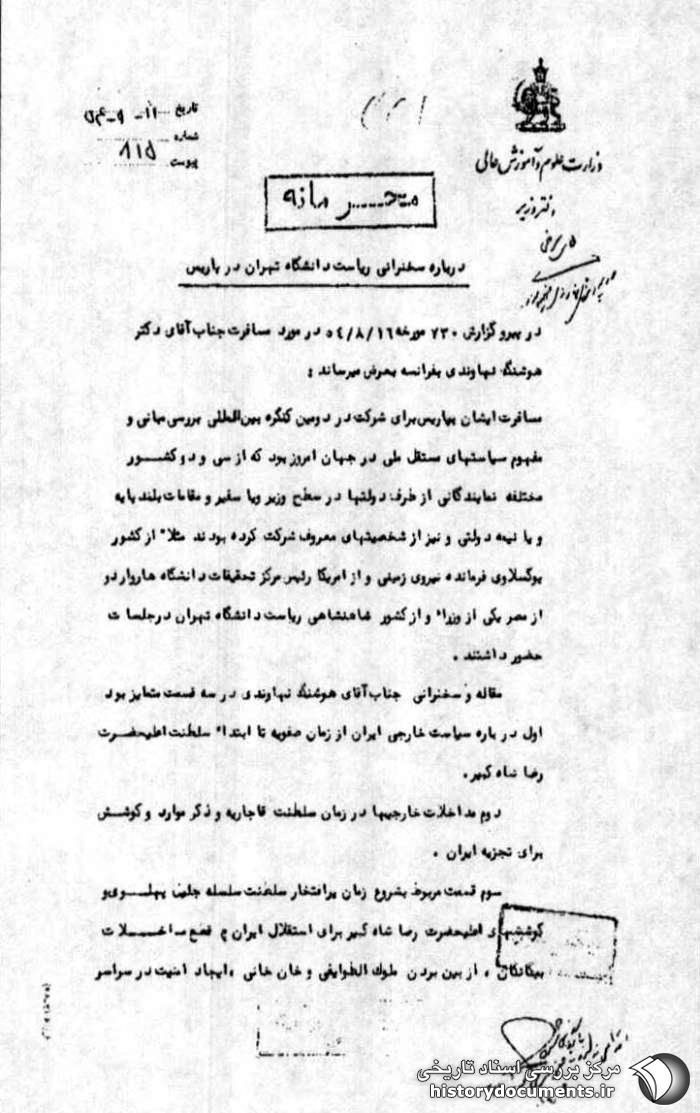 تاریخ ۱۱-۹-۵۴
شماره
پیوست ۸۱۵
وزارت علوم و آموزش عالی
دفتر وزیر
محرمانه
درباره سخنرانی ریاست دانشگاه تهران در پاریس
در پیرو گزارش ۷۳۰ مورخه ۵۴/۸/۱۶ در مورد مسافرت جناب آقای دکتر
هوشنگ نهاوندی بفرانسه بعرض میرساند :
مسافرت ایشان بپاریس برای شرکت در دومین کنگره بین‌المللی بررسی مبانی و
مفهوم سیاستهای مستقل ملی در جهان امروز بود که از سی و دو کشور
مختلفه نمایندگانی از طرف دولتها در سطح وزیر ویا سفیر و مقامات بلند پایه
و یا نیمه دولتی و نیز از شخصیتهای معروف شرکت کرده بودند مثلا" از کشور
یوگسلاوی فرمانده نیروی زمینی و از امریکا رئیس مرکز تحقیقات دانشگاه هاروارد و
از مصر یکی از وزراء و از کشور شاهنشاهی ریاست دانشگاه تهران در جلسات
حضور داشتند .
مقاله و سخنرانی جناب آقای هوشنگ نهاوندی در سه قسمت متمایز بود
اول در باره سیاست خارجی ایران از زمان صفویه تا ابتداء سلطنت اعلیحضرت
رضا شاه کبیر .
دوم مداخلات خارجیها در زمان سلطنت قاجاریه و ذکر موارد و کوشش
برای تجزیه ایران .
سوم قسمت مربوط بشروع زمان پرافتخار سلطنت سلسله جلیل پهلوی و
کوششهای اعلیحضرت رضا شاه کبیر برای استقلال ایران و قطع مداخلات
بیگانگان ، از بین بردن ملوک الطوایفی و خان خانی ، ایجاد امنیت در سراسر
مرکز بررسی اسناد تاریخی
historydocuments.ir